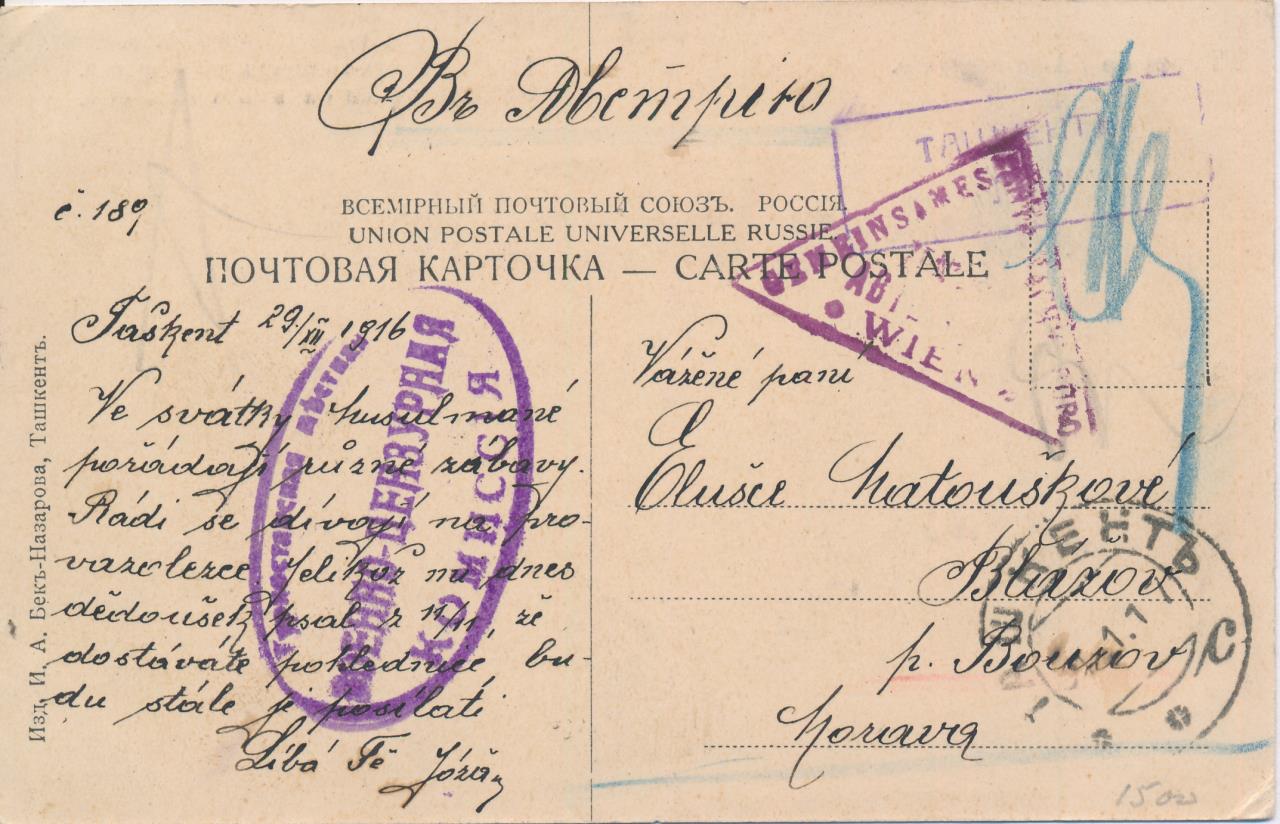 Въ Австрію
č. 189
ВСЕМІРНЫЙ ПОЧТОВЫЙ СОЮЗЪ. РОССІЯ.
UNION POSTALE UNIVERSELLE RUSSIE.
ПОЧТОВАЯ КАРТОЧКА — CARTE POSTALE
ТАШКЕНТЪ
GEMEINSAMES
WIEN
Taškent 29./XII 1916
Ve svátky musulmané
pořádají různé zábavy.
Rádi se dívají na pro-
vazolezce. Jelikož mi dnes
dědoušek psal z 11/11, že
dostáváte pohlednice, bu-
du stále je posílati
Líbá Tě Jóža
ВОЕННО-ЦЕНЗУРНАЯ
КОМИССІЯ
Vážené paní
Elušce Matouškové
Blažov
p. Bouzov
Morava
ТАШКЕНТЪ
Изд. И. А. Бекъ-Назарова, Ташкентъ.
150